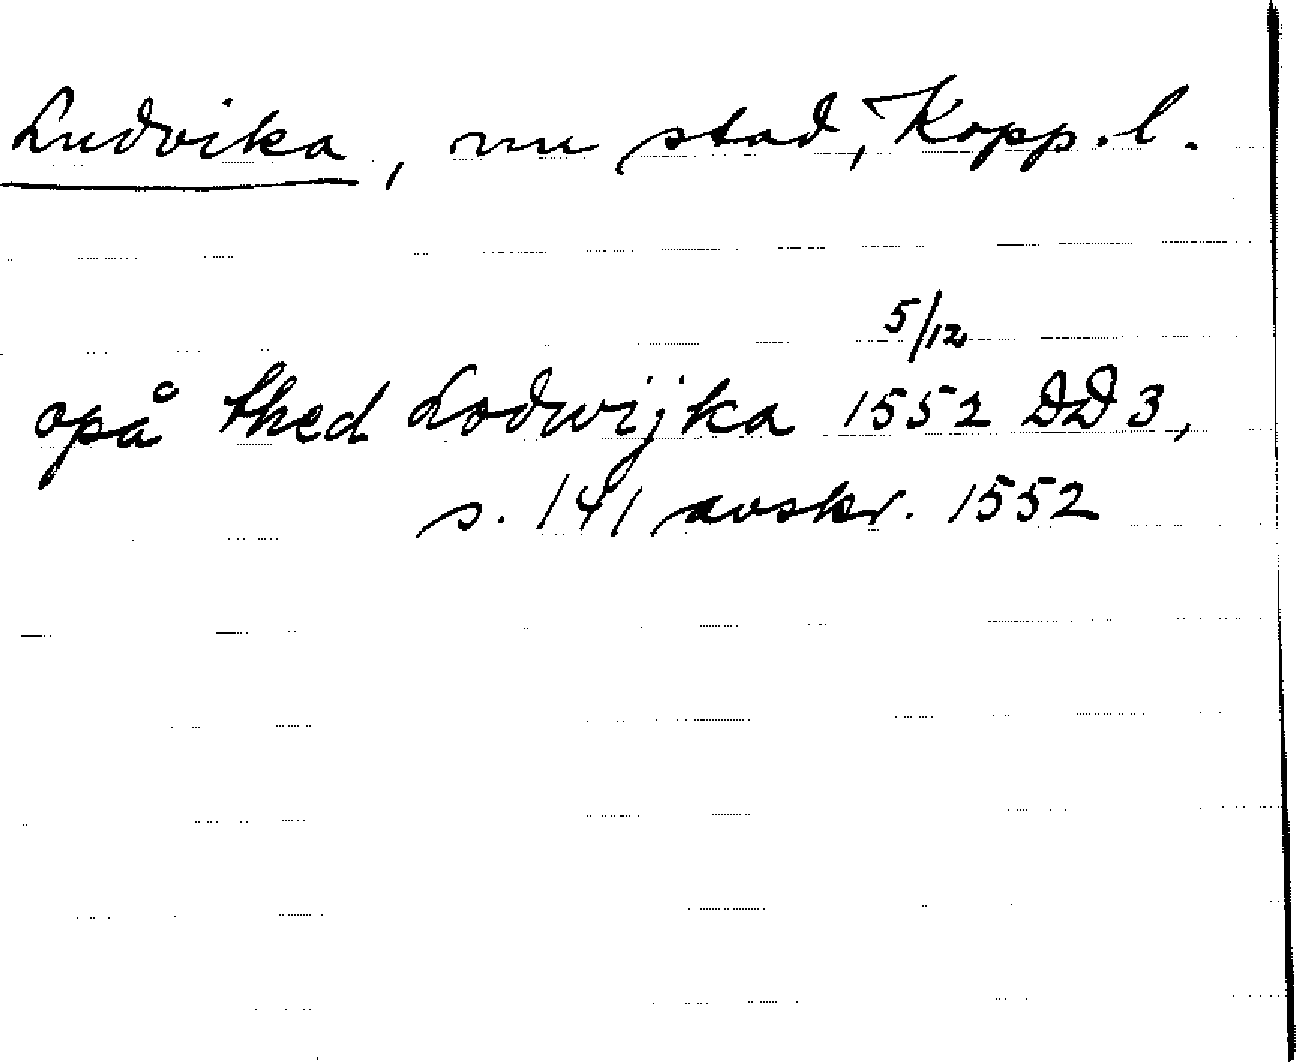 Ludvika, nu stad, Kopp. l.
opå thed Lodwijka 5/12 1552 DD 3,
s. 141 avskr. 1552